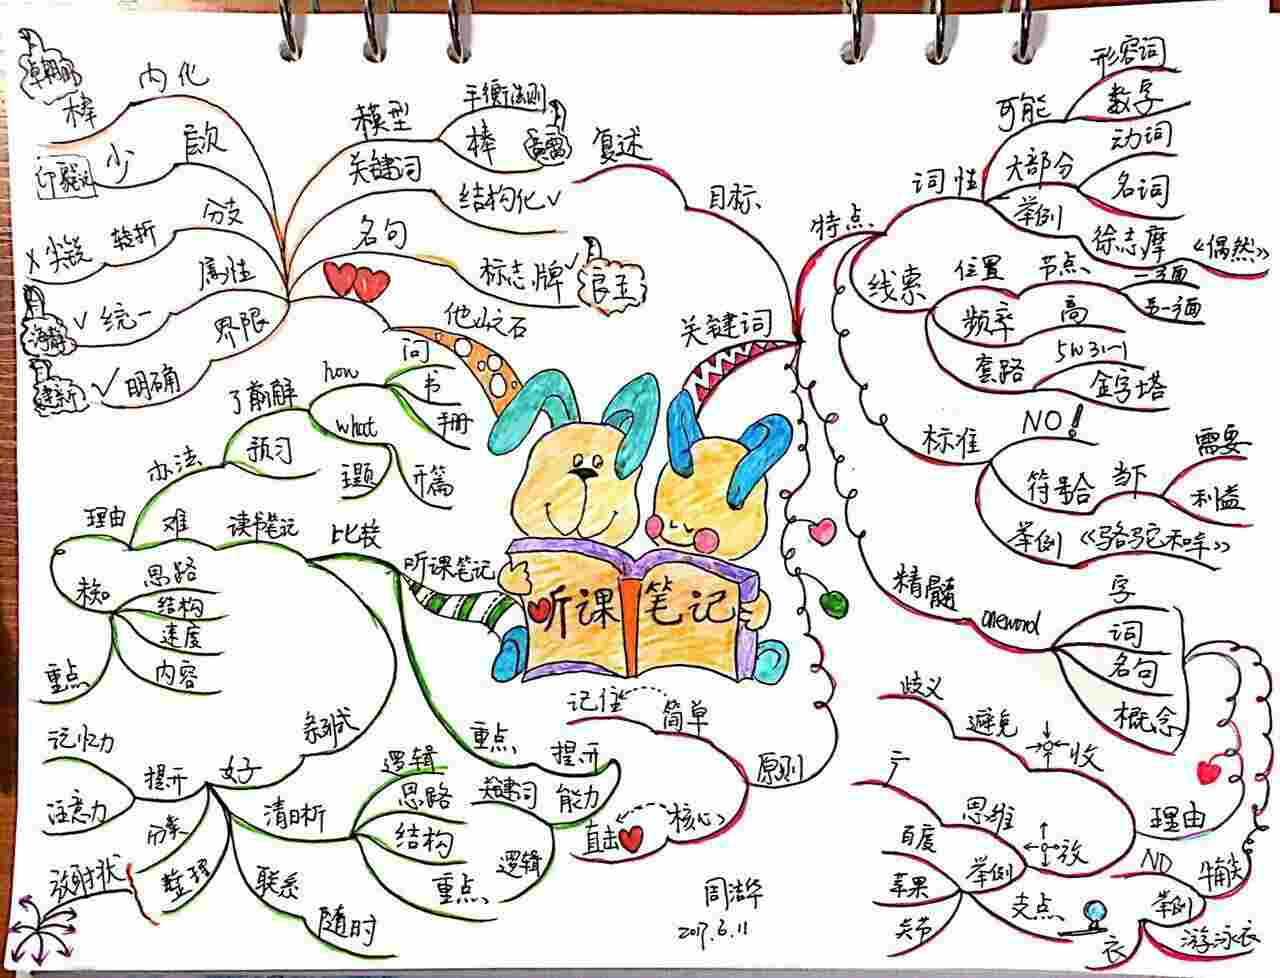 听课笔记
关键词
特点
词性
可能
形容词
数字
大部分
动词
名词
举例
徐志摩
《偶然》
线索
位置
节点
一方面
另一方面
频率
高
套路
5W3H
金字塔
标准
NO!
符合
当下
需要
利益
举例
《骆驼和羊》
精髓
one word
字
词
名句
概念
理由
收
避免
歧义
放
思维
举例
百度
苹果
关节
支点
NO
举例
游泳衣
衣
目标
复述
原则
简单
记住
核心
直击
听课笔记
比较
读书笔记
难
理由
办法
了解
how
问
书
册
what
预习
主题
开篇
思路
结构
速度
内容
重点
好
提升
记忆力
注意力
分类
整理
放射状
清晰
逻辑
思路
结构
重点
联系
随时
重点
提升
能力
关键词
逻辑
他山之石
模型
平衡法则
棒
关键词
结构化√
名句
标志牌√
内化
棒
层次
少
分支
转折
属性
统一
√
界限
明确
√
2017.6.11